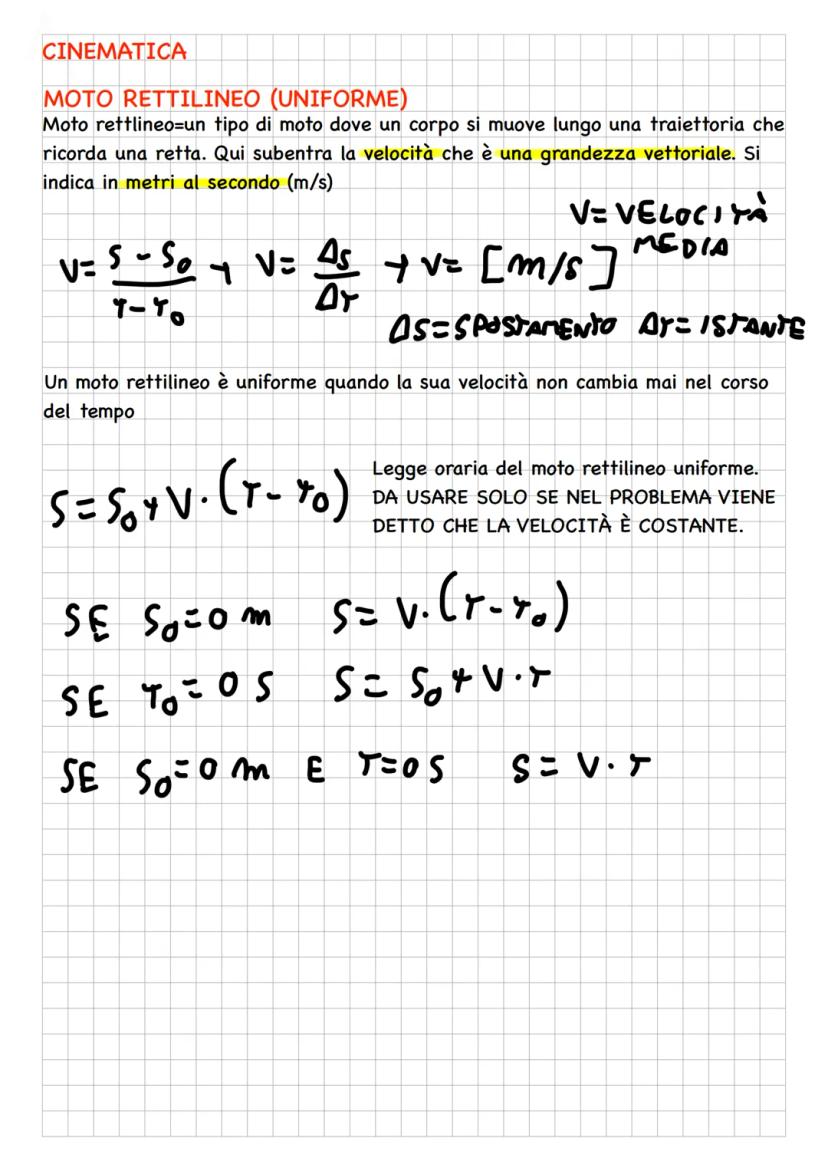 CINEMATICA
MOTO RETTILINEO (UNIFORME)
Moto rettlineo=un tipo di moto dove un corpo si muove lungo una traiettoria che
ricorda una retta. Qui subentra la velocità che è una grandezza vettoriale. Si
indica in metri al secondo (m/s)
V=VELOCITÀ
MEDIA
V= S-S₀ / T-T₀ → V= ΔS / ΔT → V= [m/s]
ΔS=SPOSTAMENTO ΔT=ISTANTE
Un moto rettilineo è uniforme quando la sua velocità non cambia mai nel corso
del tempo
S=S₀+V·(T-T₀)
Legge oraria del moto rettilineo uniforme.
DA USARE SOLO SE NEL PROBLEMA VIENE
DETTO CHE LA VELOCITÀ È COSTANTE.
SE S₀=0 m S= V·(T-T₀)
SE T₀=0 S S= S₀+V·T
SE S₀=0 m E T=0 S S= V·T